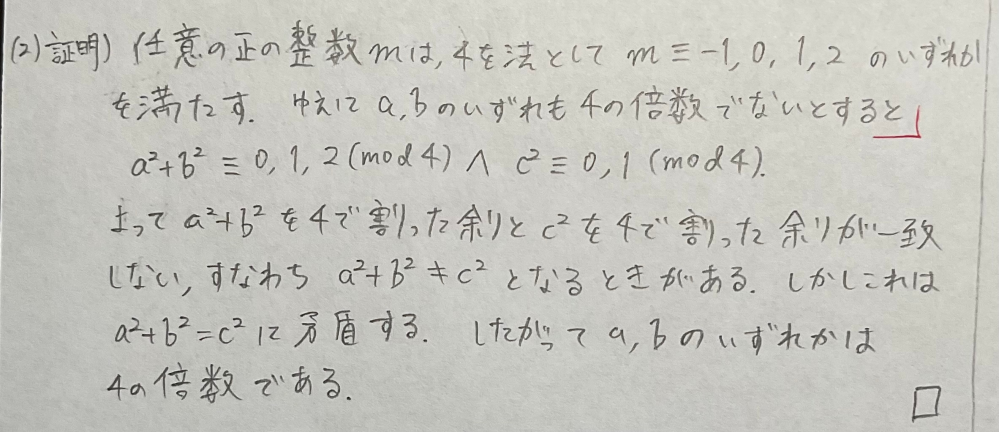 (2)証明) 任意の正の整数mは, 4を法として m ≡ -1, 0, 1, 2 のいずれか
を満たす. ゆえに a, b のいずれも 4の倍数でないとすると」
a²+b² ≡ 0, 1, 2 (mod 4) ∧ c² ≡ 0, 1 (mod 4).
よって a²+b² を 4で割った余りと c² を 4で割った余りが一致
しない, すなわち a²+b² ≠ c² となるときがある. しかしこれは
a²+b²=c² に矛盾する. したがって a, b のいずれかは
4の倍数である.
□